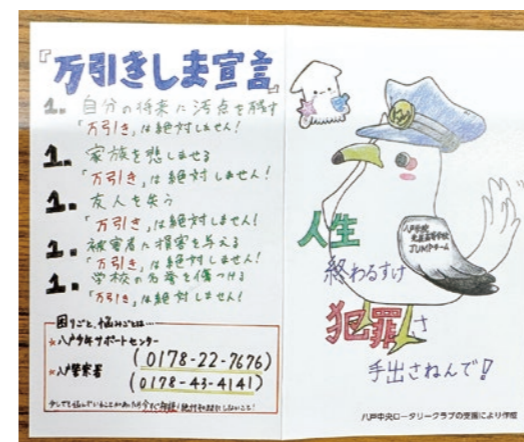 『万引きしま宣言』
1. 自分の将来に汚点を残す
「万引き」は絶対しません!
1. 家族を悲しませる
「万引き」は絶対しません!
1. 友人を失う
「万引き」は絶対しません!
1. 被害者に損害を与える
「万引き」は絶対しません!
1. 学校の名誉を傷つける
「万引き」は絶対しません!
困りごと、悩みごとは…
☆八戸少年サポートセンター
(0178-22-7676)
☆八戸警察署
(0178-43-4141)
人生
終わるすけ
犯罪さ
手出さねんで!
八戸学院
光星高等学校
JUMPチーム
八戸中央ロータリークラブの支援により作成